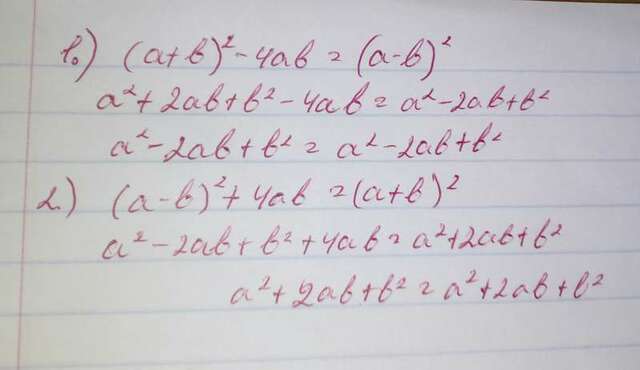 1.) (a+b)²-4ab = (a-b)²
a²+2ab+b²-4ab = a²-2ab+b²
a²-2ab+b² = a²-2ab+b²
2.) (a-b)²+4ab = (a+b)²
a²-2ab+b²+4ab = a²+2ab+b²
a²+2ab+b² = a²+2ab+b²